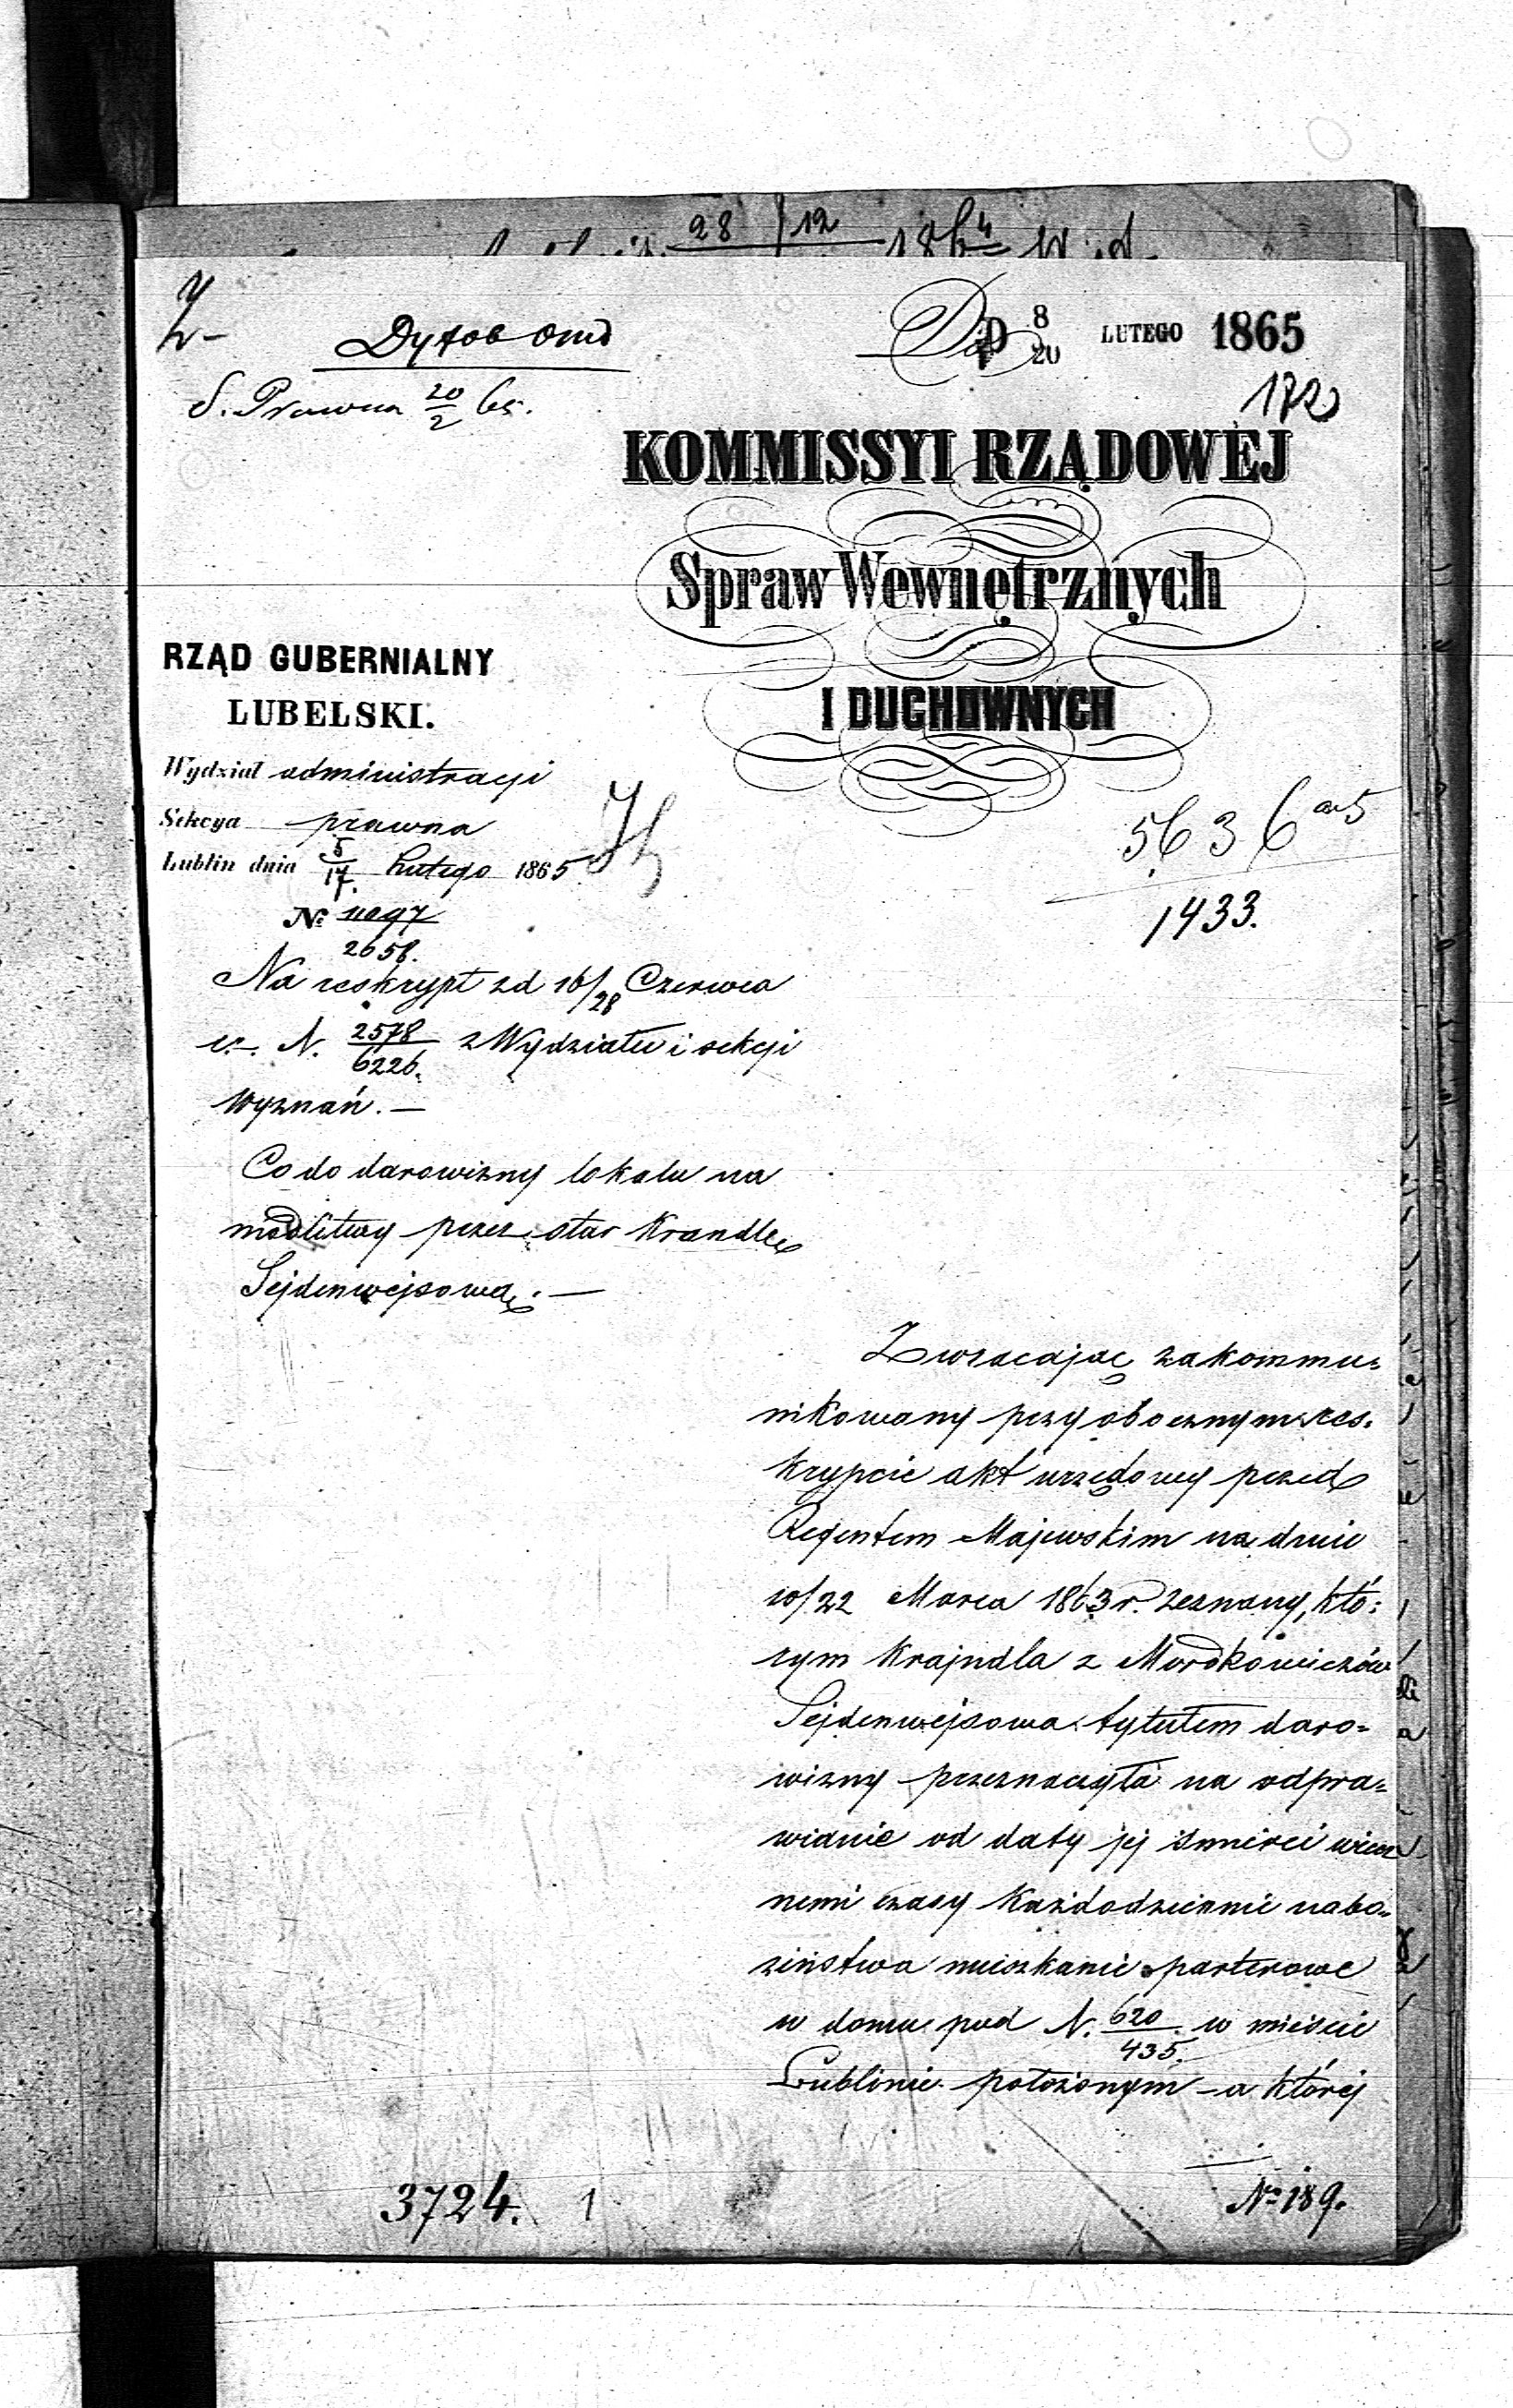 28 / 12 1864
Dytob
S. Prawna 20/2 65.
D 8/20 LUTEGO 1865
172
KOMMISSYI RZĄDOWEJ
Spraw Wewnętrznych
I DUCHOWNYCH
RZĄD GUBERNIALNY
LUBELSKI.
Wydział administracyi
Sekcya prawna
Lublin dnia 5/17. Lutego 1865
5636
1433.
N: 11097/2658.
Na reskrypt zd 16/28 Czerwca
N. 2578/6226. z Wydziału i sekcji
Wyznań. —
Co do darowizny lokalu na
modlitwy przez star Krandlę
Sejdenwejsową. —
Zwracając zakommu=
nikowany przy obocznym res=
krypcie akt urzędowy przed
Regentem Majewskim na dniu
10/22 Marca 1863 r. zeznany, któ=
rym Krajndla z Mordkowiczów
Sejdenwejsowa tytułem daro=
wizny przeznaczyła na odpra=
wianie od daty jej śmierci wiecz
nemi czasy każdodziennie nabo=
żeństwa mieszkanie parterowe
w domu pod N. 620/435. w mieście
Lublinie położonym – a której
3724. 1
No 189.